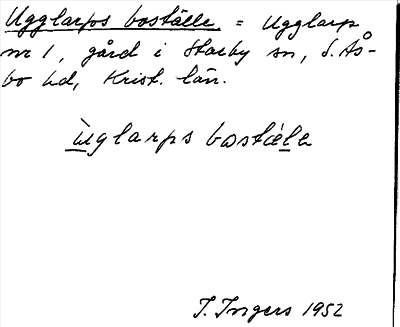 Ugglarps boställe = Ugglarp
nr 1, gård i Starby sn, S. Ås-
bo hd, Krist. län.
ùglarps bostäle
I. Ingers 1952